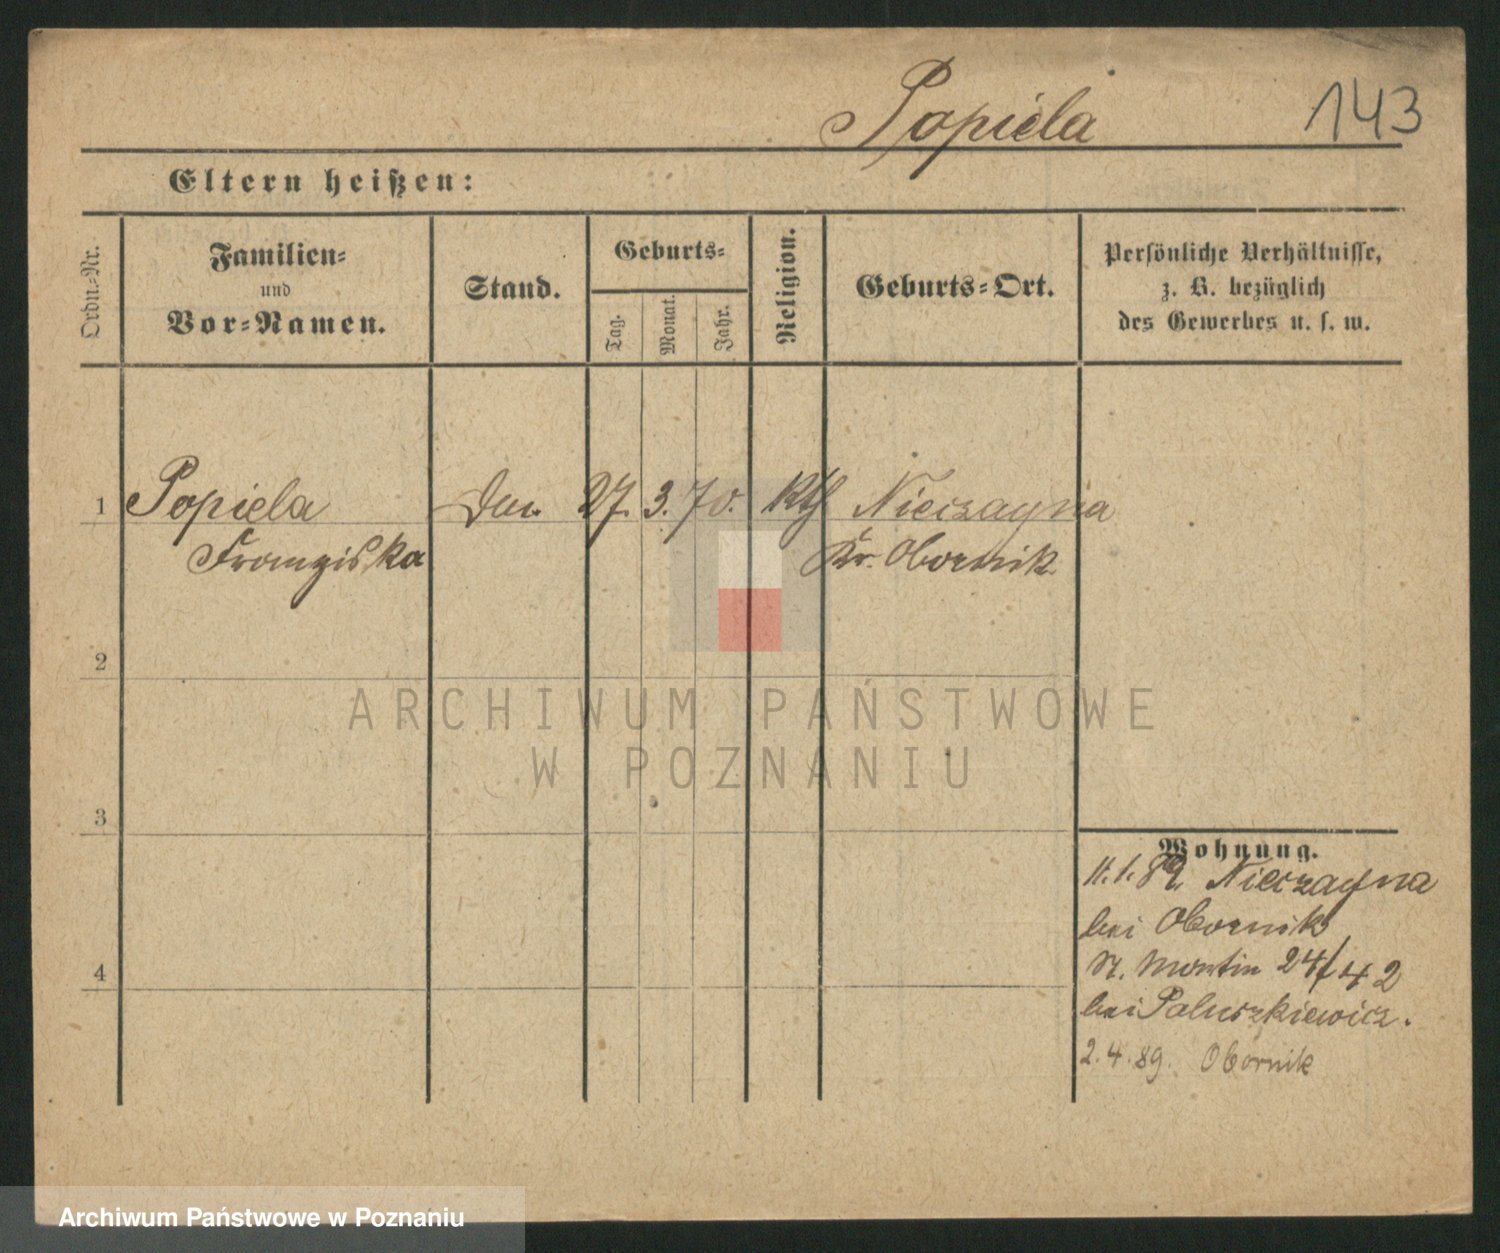 Popiela 143
Eltern heißen:
Ordn.-Nr.
Familien-
und
Vor-Namen.
Stand.
Geburts-
Tag.
Monat.
Jahr.
Religion.
Geburts-Ort.
Persönliche Verhältnisse,
z. B. bezüglich
des Gewerbes u. s. w.
1 Popiela 27. 3. 70. Kth Nieczayna
Franziska Kr. Obornik
2
3
4
Wohnung.
11.1.89. Nieczayna
bei Obornik
St. Martin 24/42
bei Paluszkiewicz.
2.4.89. Obornik
ARCHIWUM PAŃSTWOWE
W POZNANIU
Archiwum Państwowe w Poznaniu